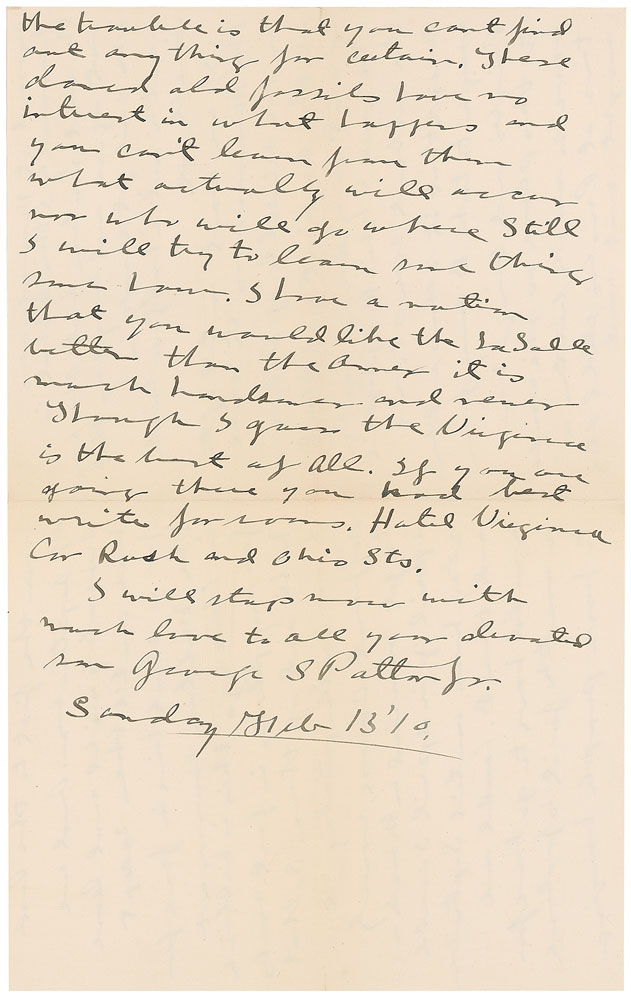 the trouble is that you cant find
out any thing for certain. These
damed old fossils have no
interest in what happens and
you can't learn from them
what actually will occur
nor who will go where Still
I will try to learn some thing
some how. I have a notion
that you would like the La Salle
better than the Annex it is
much handsomer and newer
Though I guess the Virginia
is the best of All. If you are
going there you had best
write for rooms. Hotel Virginia
Cor Rush and Ohio Sts.
I will stop now with
much love to all your devoted
son George S Patton Jr.
Sunday Feb 13'10.